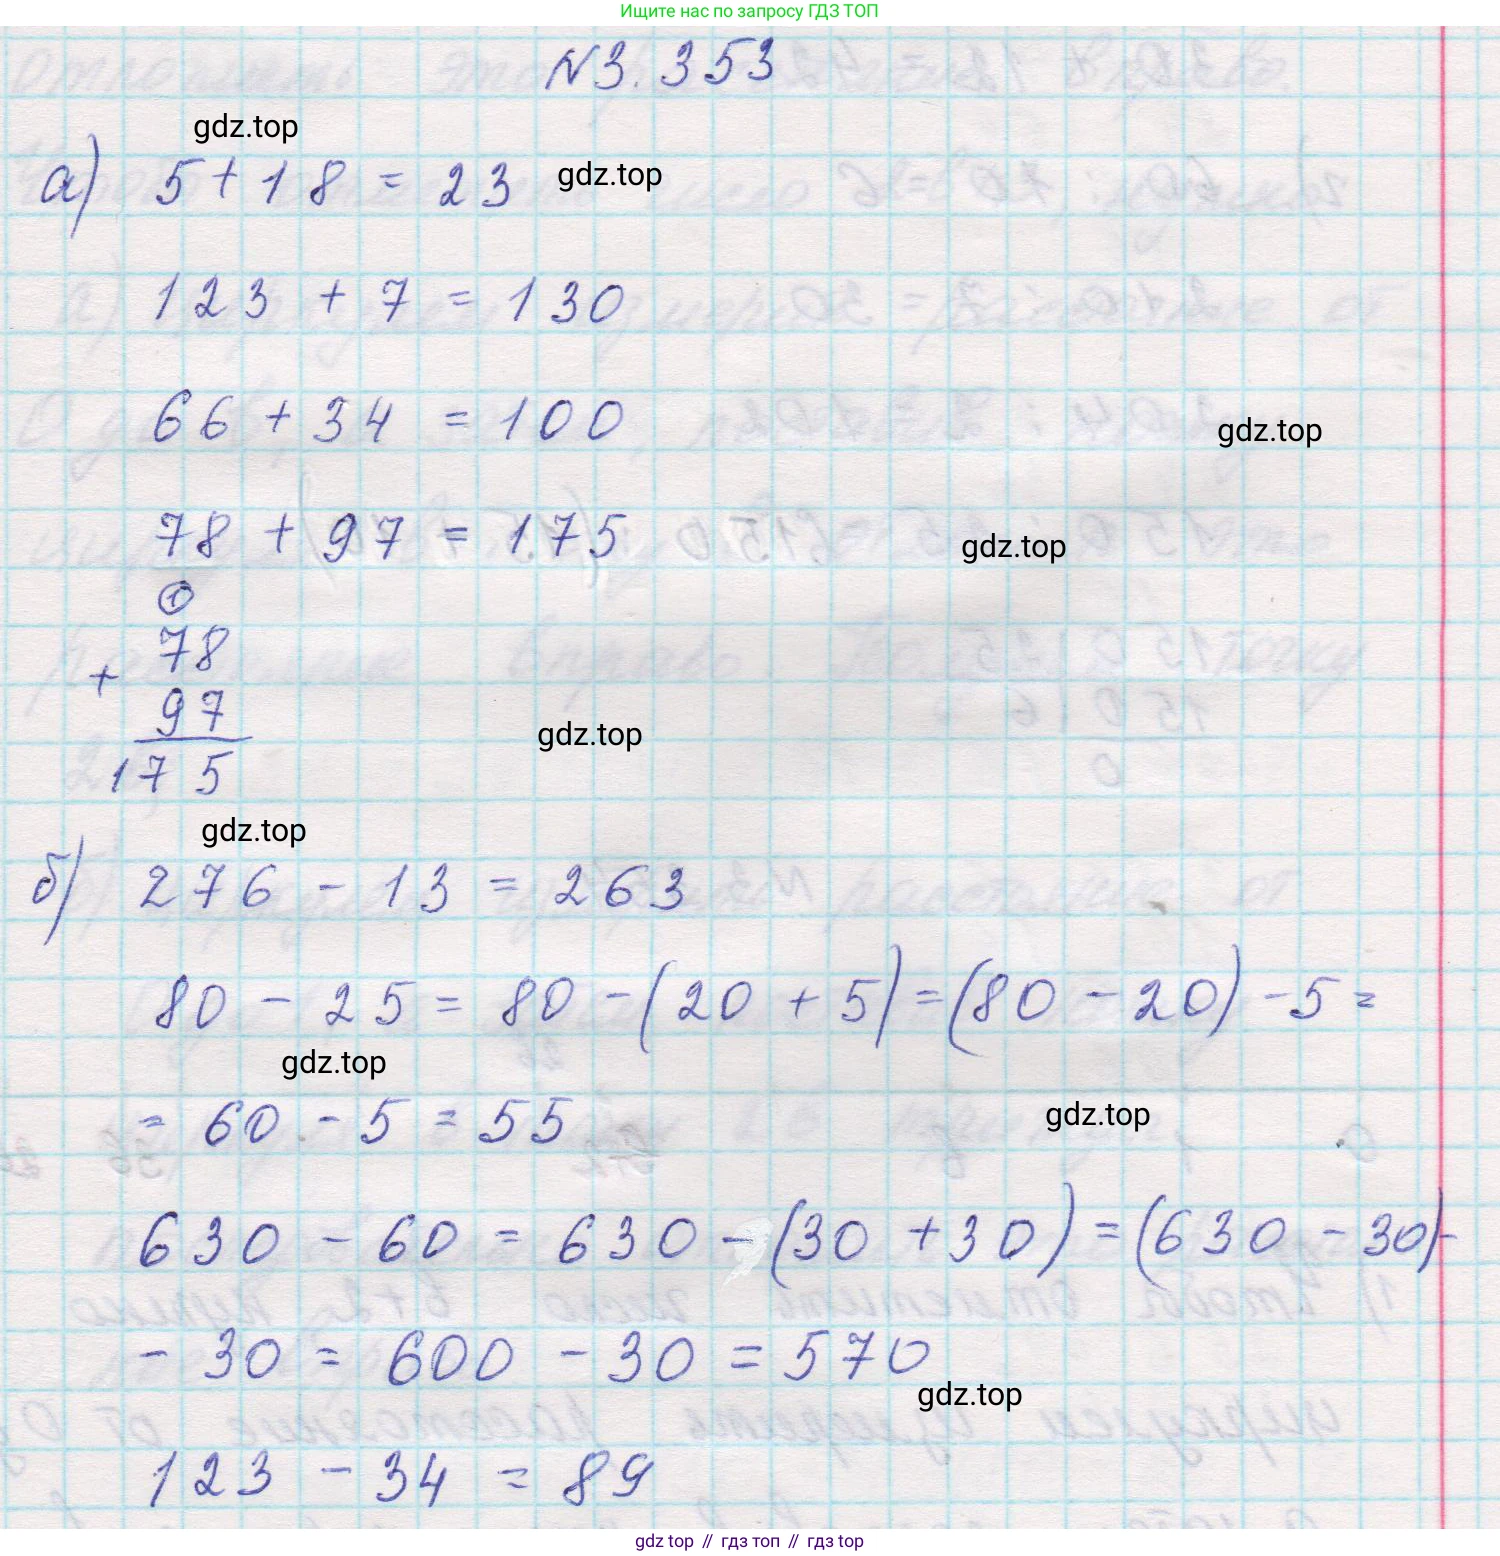 Ищите нас по запросу ГДЗ ТОП
N3.353
gdz.top
а) 5+18 = 23
gdz.top
123 + 7 = 130
66 + 34 = 100
gdz.top
78 + 97 = 175
gdz.top
1
78
+
97
gdz.top
175
gdz.top
б) 276 - 13 = 263
80 - 25 = 80 - (20 + 5) = (80 - 20) - 5 =
gdz.top
= 60 - 5 = 55
gdz.top
630 - 60 = 630 - (30 + 30) = (630 - 30) -
- 30 = 600 - 30 = 570
gdz.top
123 - 34 = 89
gdz.top // гдз топ // гдз.top